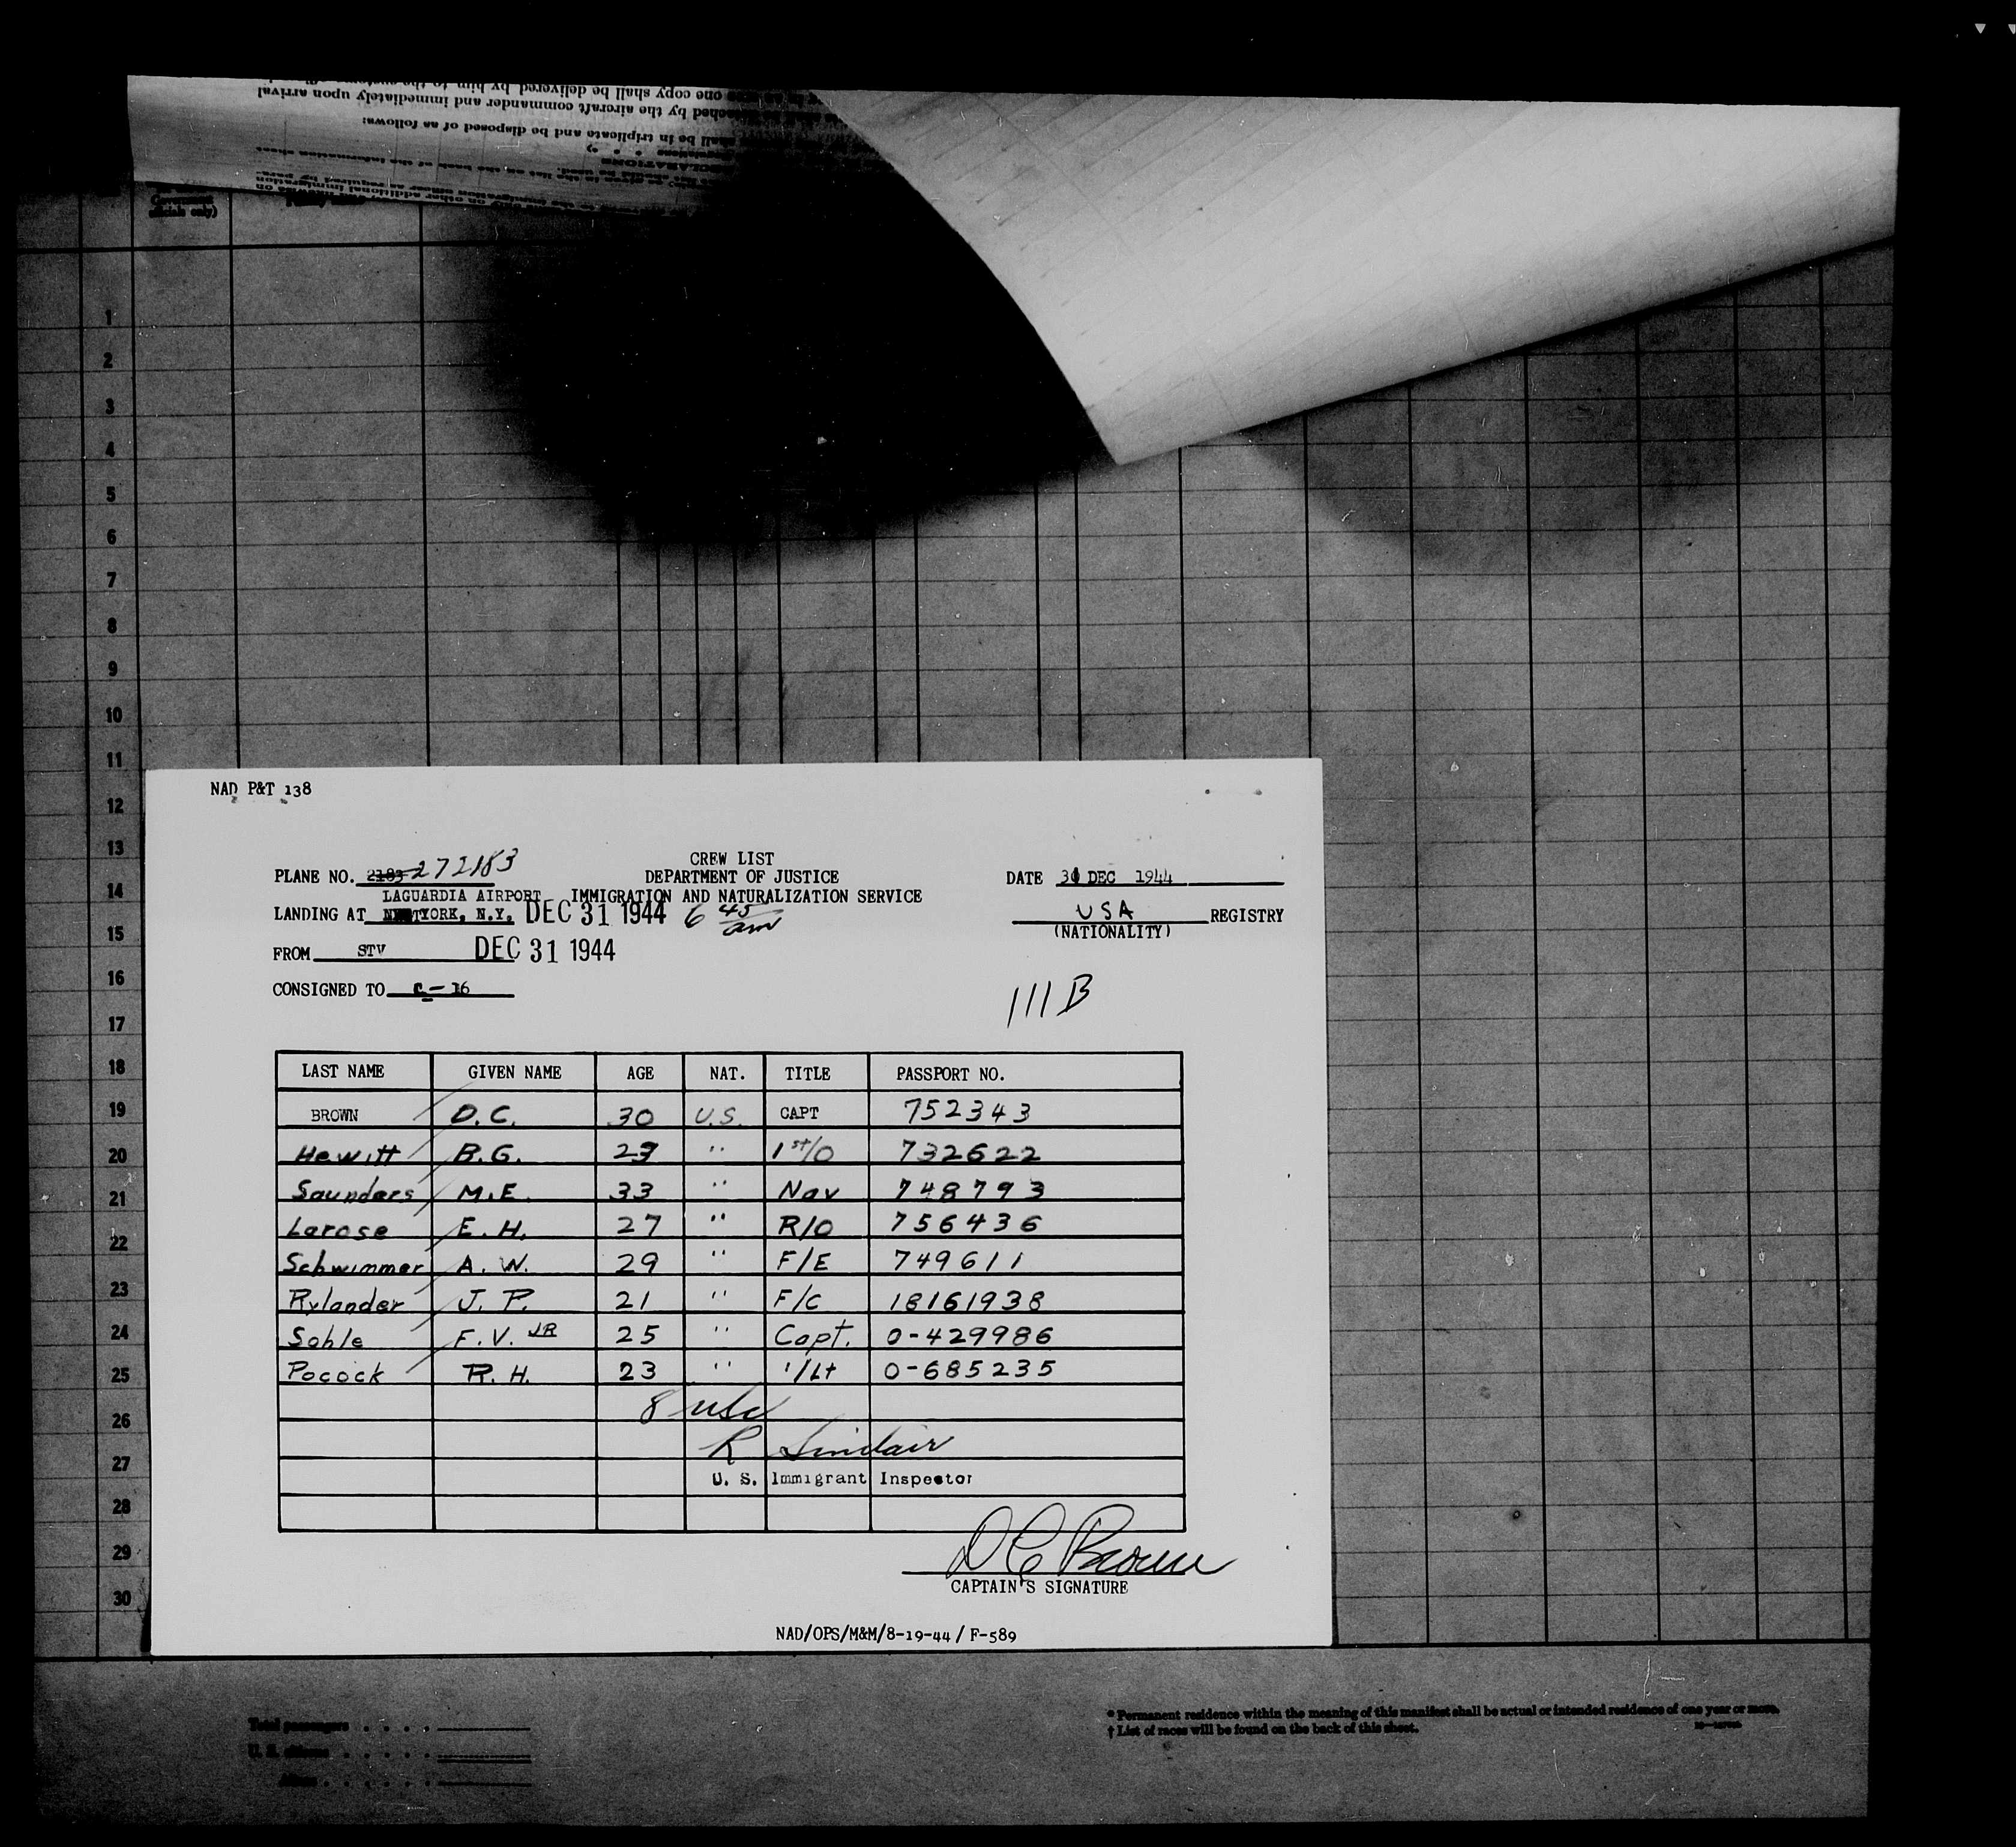 one copy shall be delivered by him to the
by the aircraft commander and immediately upon arrival
shall be in triplicate and be disposed of as follows:
officials only)
1
2
3
4
5
6
7
8
9
10
11
12
13
14
15
16
17
18
19
20
21
22
23
24
25
26
27
28
29
30
NAD P&T 138
CREW LIST
PLANE NO. 2183 272183 DEPARTMENT OF JUSTICE DATE 30 DEC 1944
LAGUARDIA AIRPORT IMMIGRATION AND NATURALIZATION SERVICE
LANDING AT YORK, N.Y. DEC 31 1944 6 45 am USA REGISTRY
(NATIONALITY)
FROM STV DEC 31 1944
CONSIGNED TO C-16
111 B
LAST NAME GIVEN NAME AGE NAT. TITLE PASSPORT NO.
BROWN D.C. 30 U.S. CAPT 752343
Hewitt B.G. 29 " 1st/O 732622
Saunders M.E. 33 " Nav 748793
Larose E.H. 27 " R/O 756436
Schwimmer A.W. 29 " F/E 749611
Rylander J.P. 21 " F/C 18161938
Sohle F.V. JR 25 " Capt. 0-429986
Pocock R.H. 23 " 1/Lt 0-685235
8 usc
R Sinclair
U. S. Immigrant Inspector
D C Brown
CAPTAIN'S SIGNATURE
NAD/OPS/M&M/8-19-44/ F-589
Total passengers
U. S. citizens
Aliens
* Permanent residence within the meaning of this manifest shall be actual or intended residence of one year or more.
† List of races will be found on the back of this sheet.